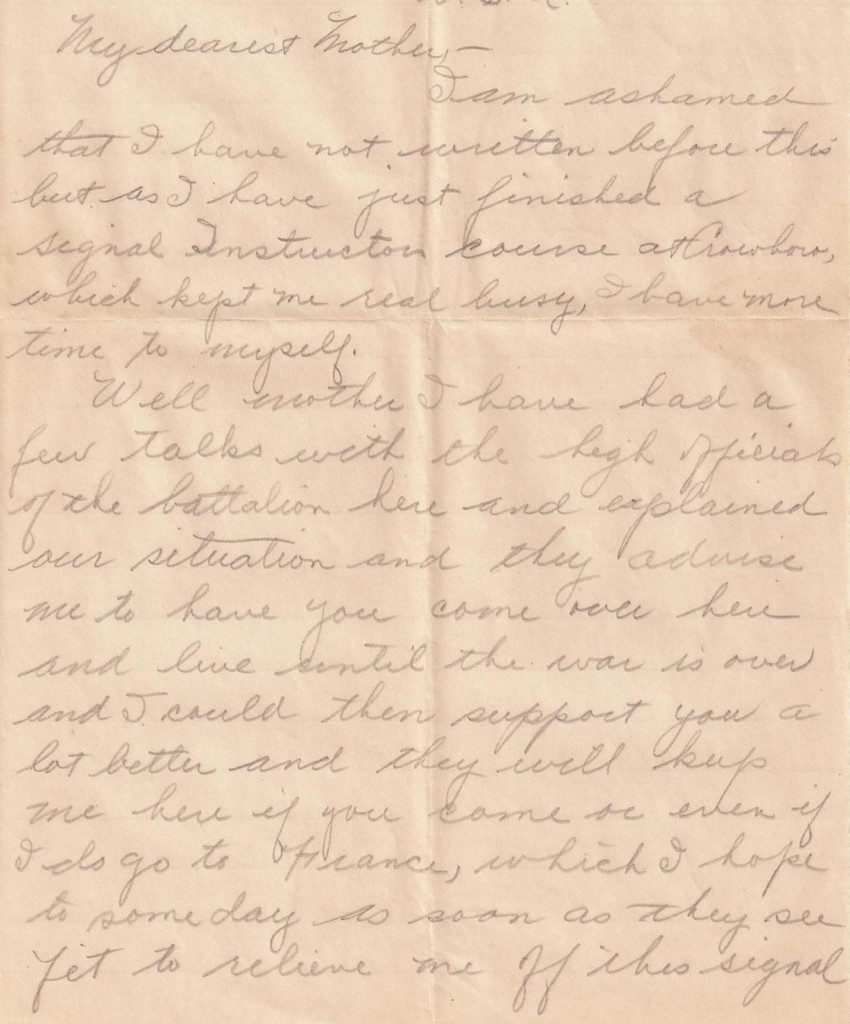 My dearest Mother,—
I am ashamed
that I have not written before this
but as I have just finished a
signal Instructors course at Crowboro,
which kept me real busy, I have more
time to myself.
Well mother I have had a
few talks with the high officials
of the battalion here and explained
our situation and they advise
me to have you come over here
and live until the war is over
and I could then support you a
lot better and they will keep
me here if you come or even if
I do go to France, which I hope
to some day as soon as they see
fit to relieve me off this signal